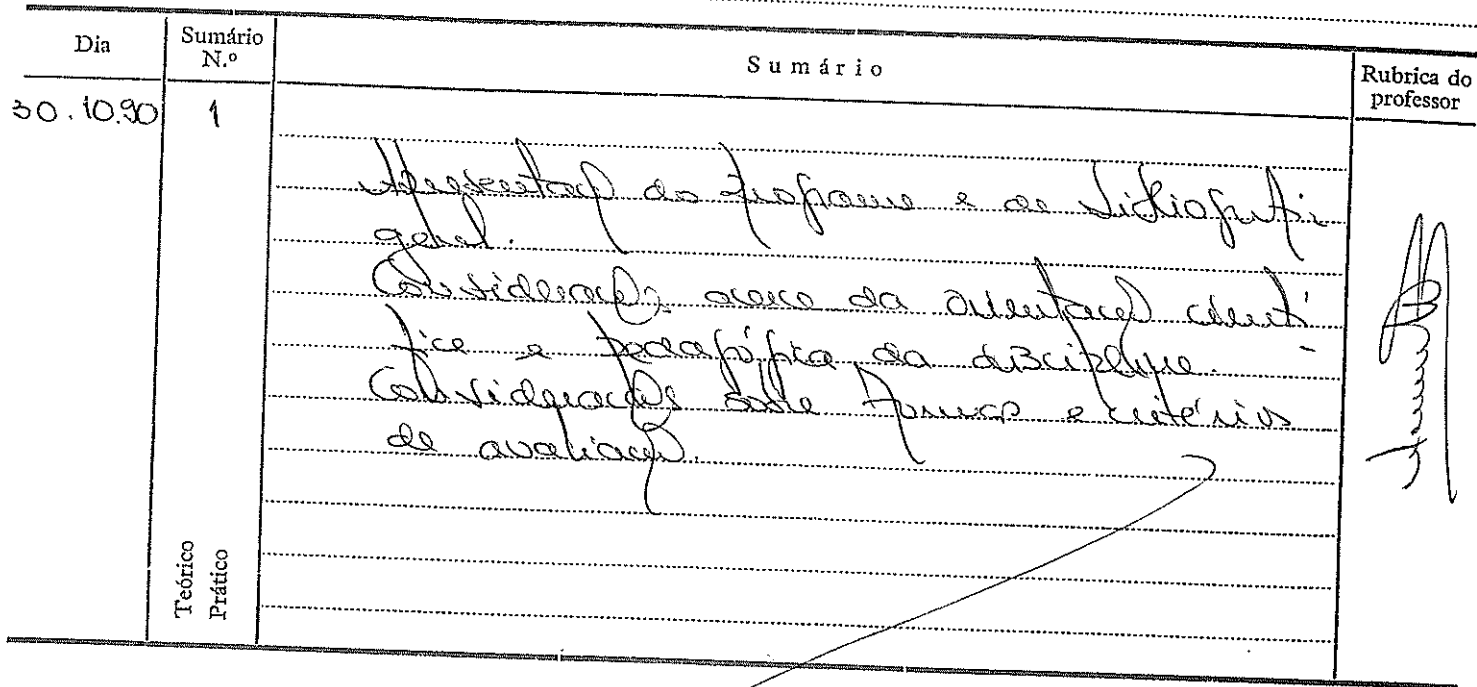 Dia
Sumário N.º
Sumário
Rubrica do professor
30.10.90
1
Apresentação do programa e da bibliografia
geral.
Considerações acerca da orientação cientí-
fica e pedagógica da disciplina.
Considerações sobre formas e critérios
de avaliação.
Teórico
Prático